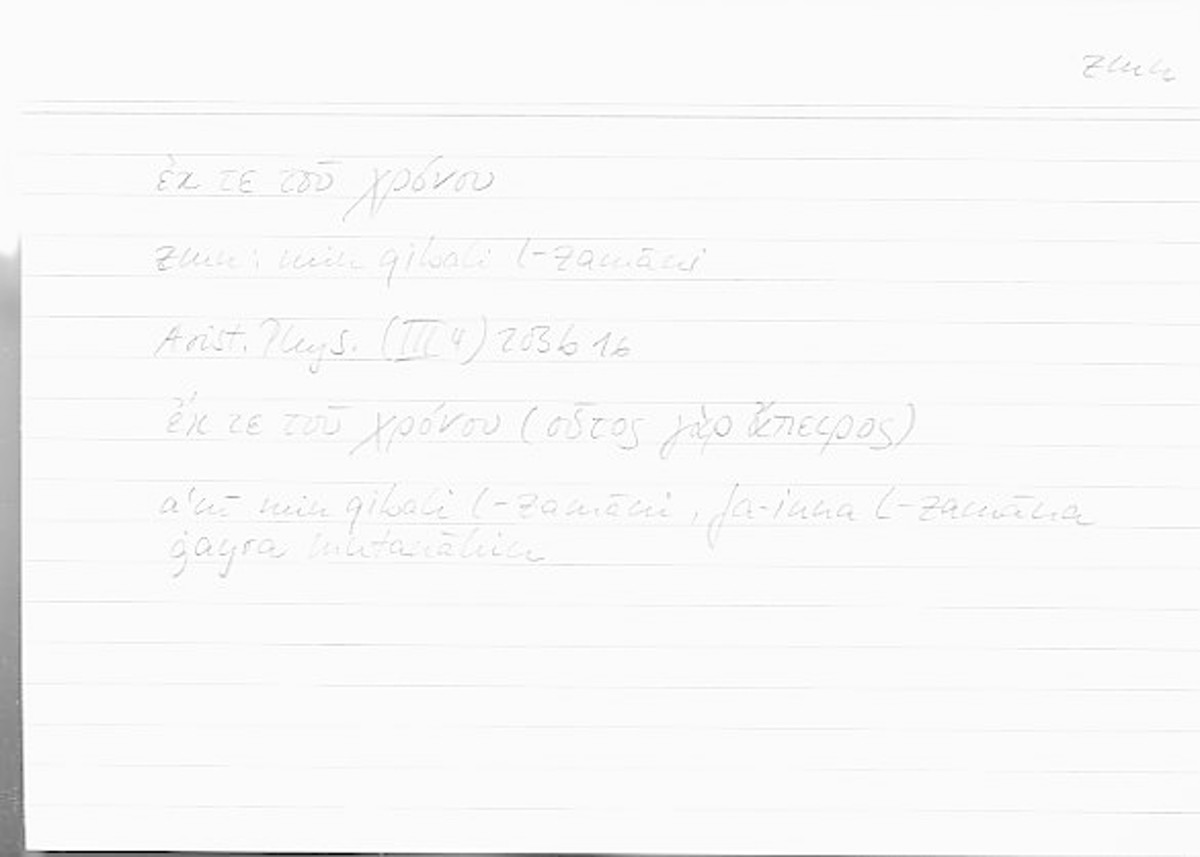 zmn
ἐκ τε τοῦ χρόνου
zmn: min qibali l-zamāni
Arist. Phys. (III 4) 203b16
ἔκ τε τοῦ χρόνου (οὗτος γὰρ ἄπειρος)
aʿnī min qibali l-zamāni, fa-inna l-zamāna
ġayra mutanāhin